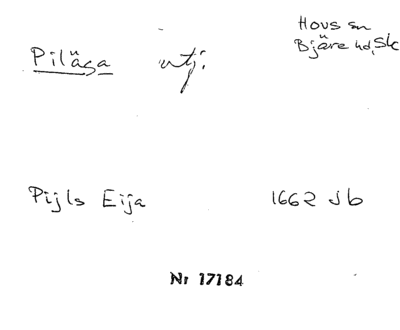 Hovs sn
Bjäre hd, Sk
Piläga utj.
Pijls Eija 1662 Jb
Nr 17184